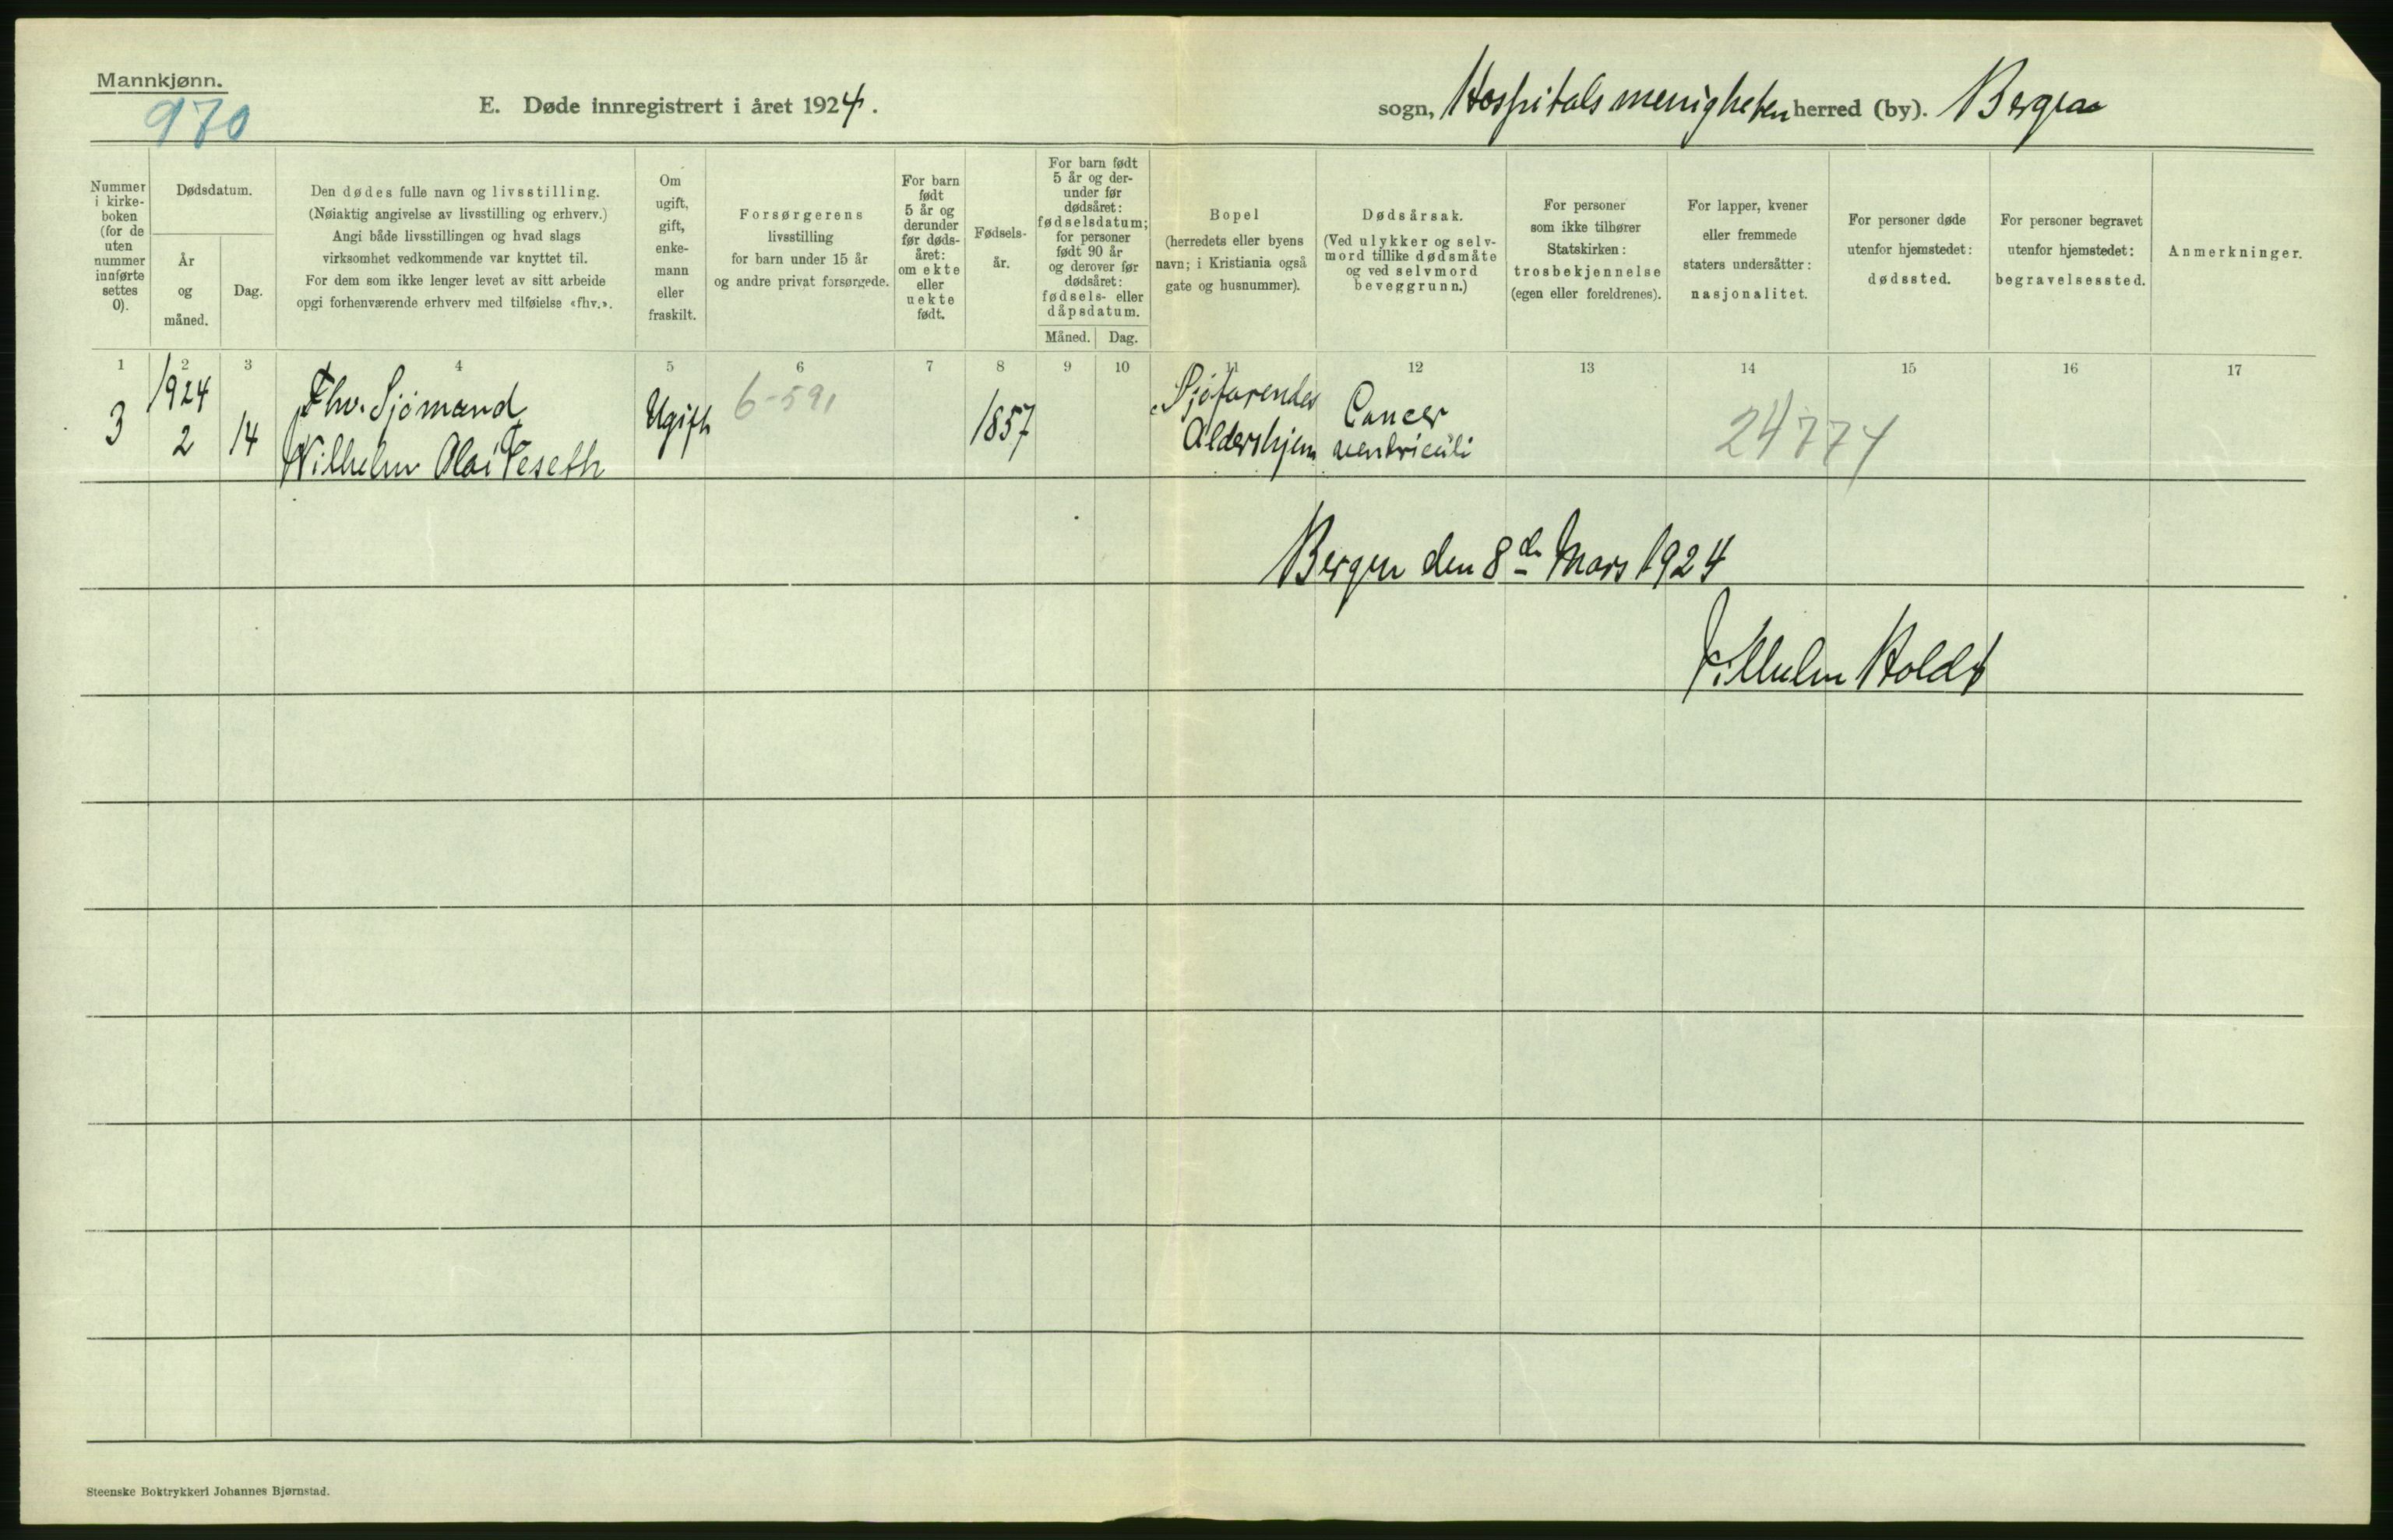 Mannkjønn.
970
E. Døde innregistrert i året 1924.
sogn, Hospitalsmenigheten herred (by). Bergen
Nummer
i kirke-
boken
(for de
uten
nummer
innførte
settes
0).
Dødsdatum.
År
og
måned.
Dag.
Den dødes fulle navn og livsstilling.
(Nøiaktig angivelse av livsstilling og erhverv.)
Angi både livsstillingen og hvad slags
virksomhet vedkommende var knyttet til.
For dem som ikke lenger levet av sitt arbeide
opgi forhenværende erhverv med tilføielse «fhv.».
Om
ugift,
gift,
enke-
mann
eller
fraskilt.
Forsørgerens
livsstilling
for barn under 15 år
og andre privat forsørgede.
For barn
født
5 år og
derunder
før døds-
året:
om ekte
eller
uekte
født.
Fødsels-
år.
For barn født
5 år og der-
under før
dødsåret:
fødselsdatum;
for personer
født 90 år
og derover før
dødsåret:
fødsels- eller
dåpsdatum.
Måned. Dag.
Bopel
(herredets eller byens
navn; i Kristiania også
gate og husnummer).
Dødsårsak.
(Ved ulykker og selv-
mord tillike dødsmåte
og ved selvmord
beveggrunn.)
For personer
som ikke tilhører
Statskirken:
trosbekjennelse
(egen eller foreldrenes).
For lapper, kvener
eller fremmede
staters undersåtter:
nasjonalitet.
For personer døde
utenfor hjemstedet:
dødssted.
For personer begravet
utenfor hjemstedet:
begravelsessted.
Anmerkninger.
1 2 3 4 5 6 7 8 9 10 11 12 13 14 15 16 17
1924 Fhv. Sjömand 6-591 Sjöfarendes Cancer
3 2 14 Wilhelm Olai Teseth Ugift 1857 Aldershjem ventriculi 24774
Bergen den 8de Mars 1924
Vilhelm Holdt
Steenske Boktrykkeri Johannes Bjørnstad.